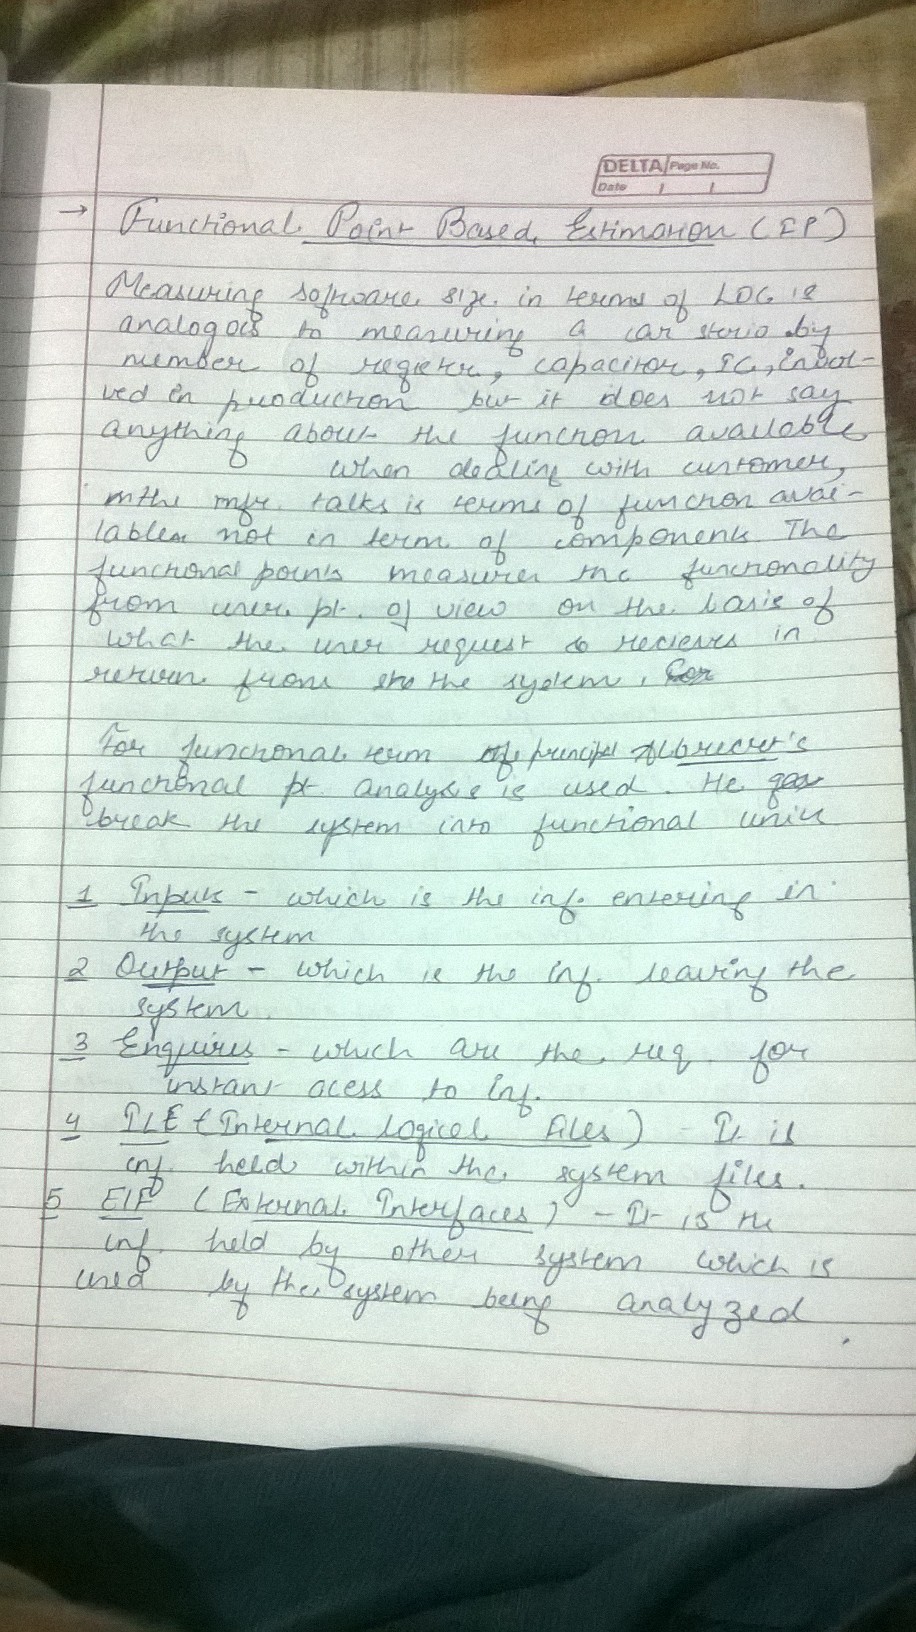 DELTA Page No.
Date / /
→ Functional Point Based Estimation (FP)
Measuring software size in terms of LOC is
analogous to measuring a car sterio by
number of register, capacitor, IC, invol-
ved in production but it does not say
anything about the function available
when dealing with customer,
the mfr. talks is terms of function avai-
lable not in term of components The
functional points measures the functionality
from user pt. of view on the basis of
what the user request & recieves in
return from the system.
For functional term principal Albrecht's
functional pt. analysis is used. He
break the system into functional units
1 Inputs - which is the inf. entering in
the system
2 Output - which is the inf. leaving the
system.
3 Enquires - which are the req. for
instant acess to inf.
4 ILF (Internal Logical Files) - It is
inf. held within the system files.
5 EIF (External Interfaces) - It is the
inf. held by other system which is
used by the system being analyzed.